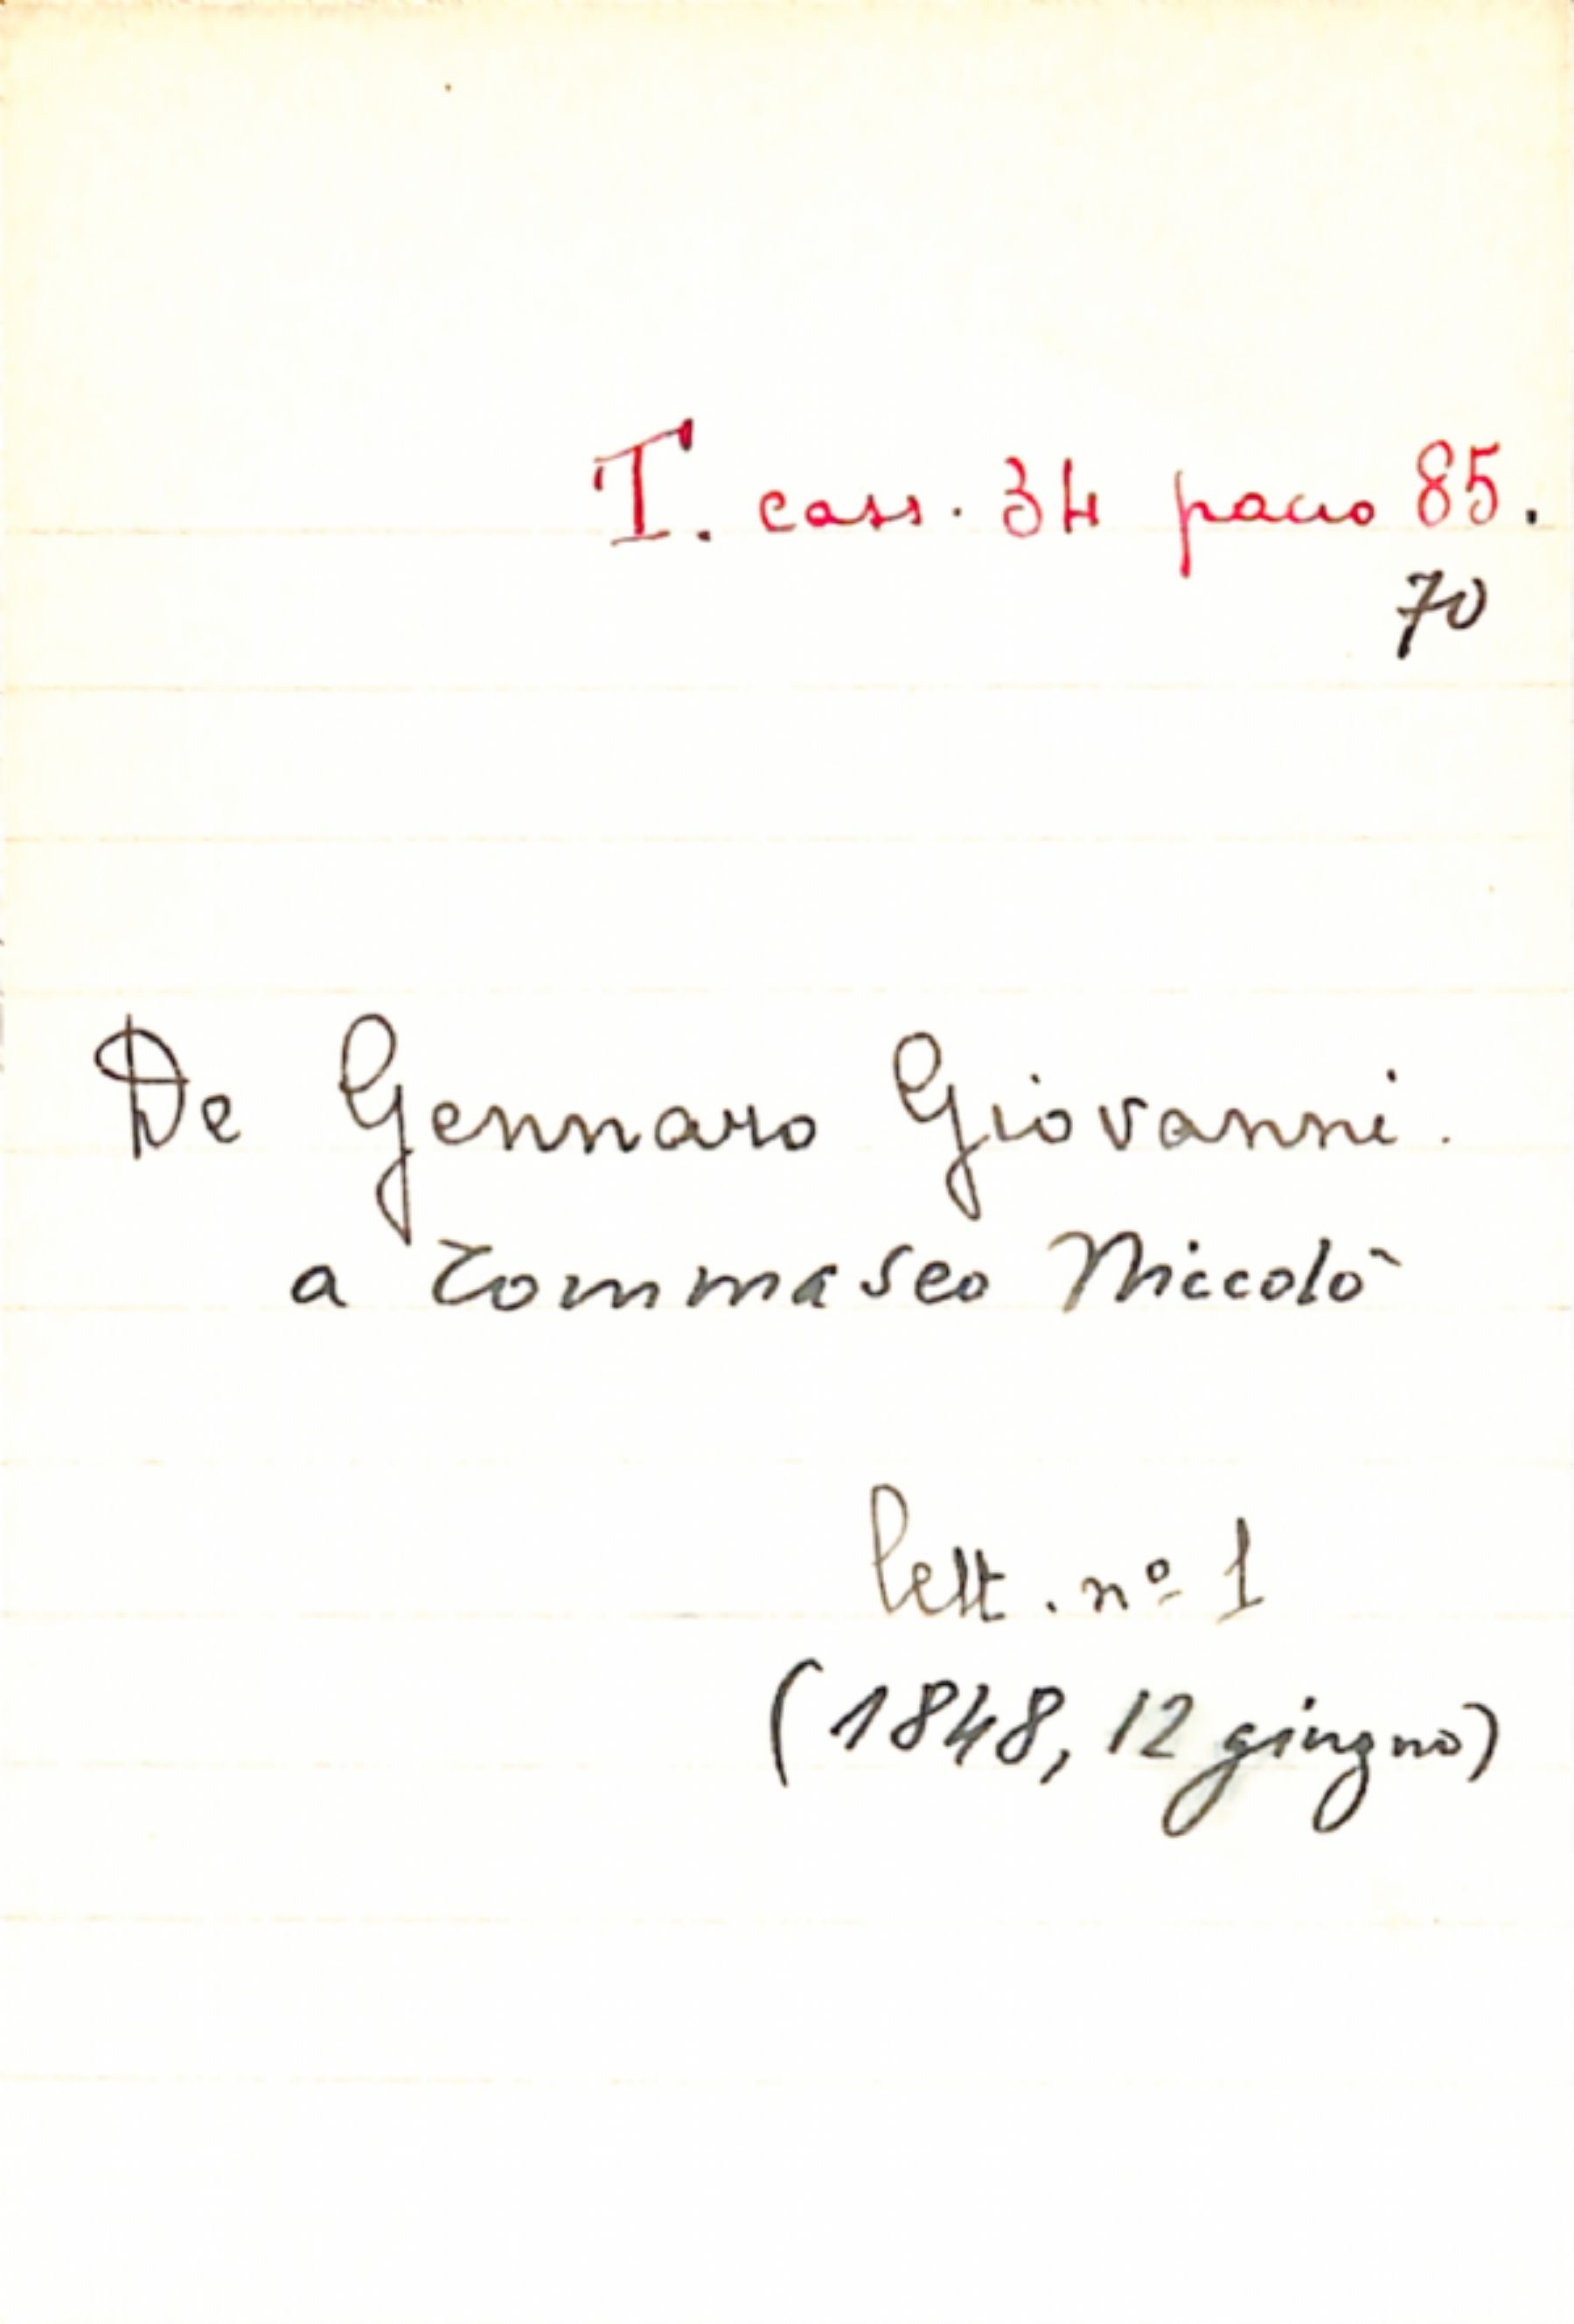 T. cass. 34 pacco 85.
70
De Gennaro Giovanni.
a Tommaseo Niccolò
lett. nº 1
(1848, 12 giugno)